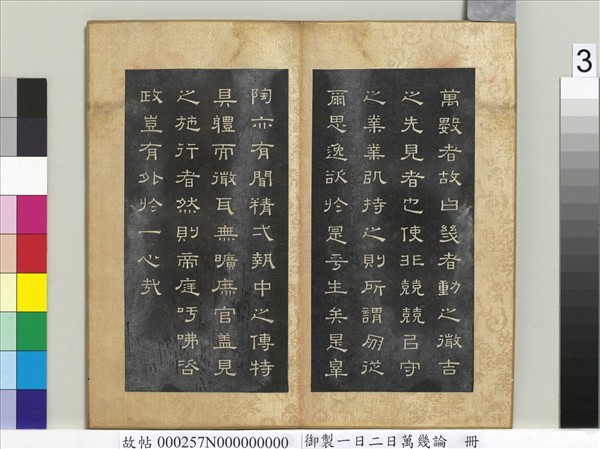 萬數者故曰幾者動之微吉
之先見者也使非兢兢以守
之業業以持之則所謂朋從
爾思逸欲於是乎生矣是皐
陶亦有聞精弌執中之傳特
具體而微耳無曠庶官蓋見
之施行者然則帝庭吁咈咨
政豈有外於一心哉
3
故帖 000257N000000000 御製一日二日萬幾論 冊